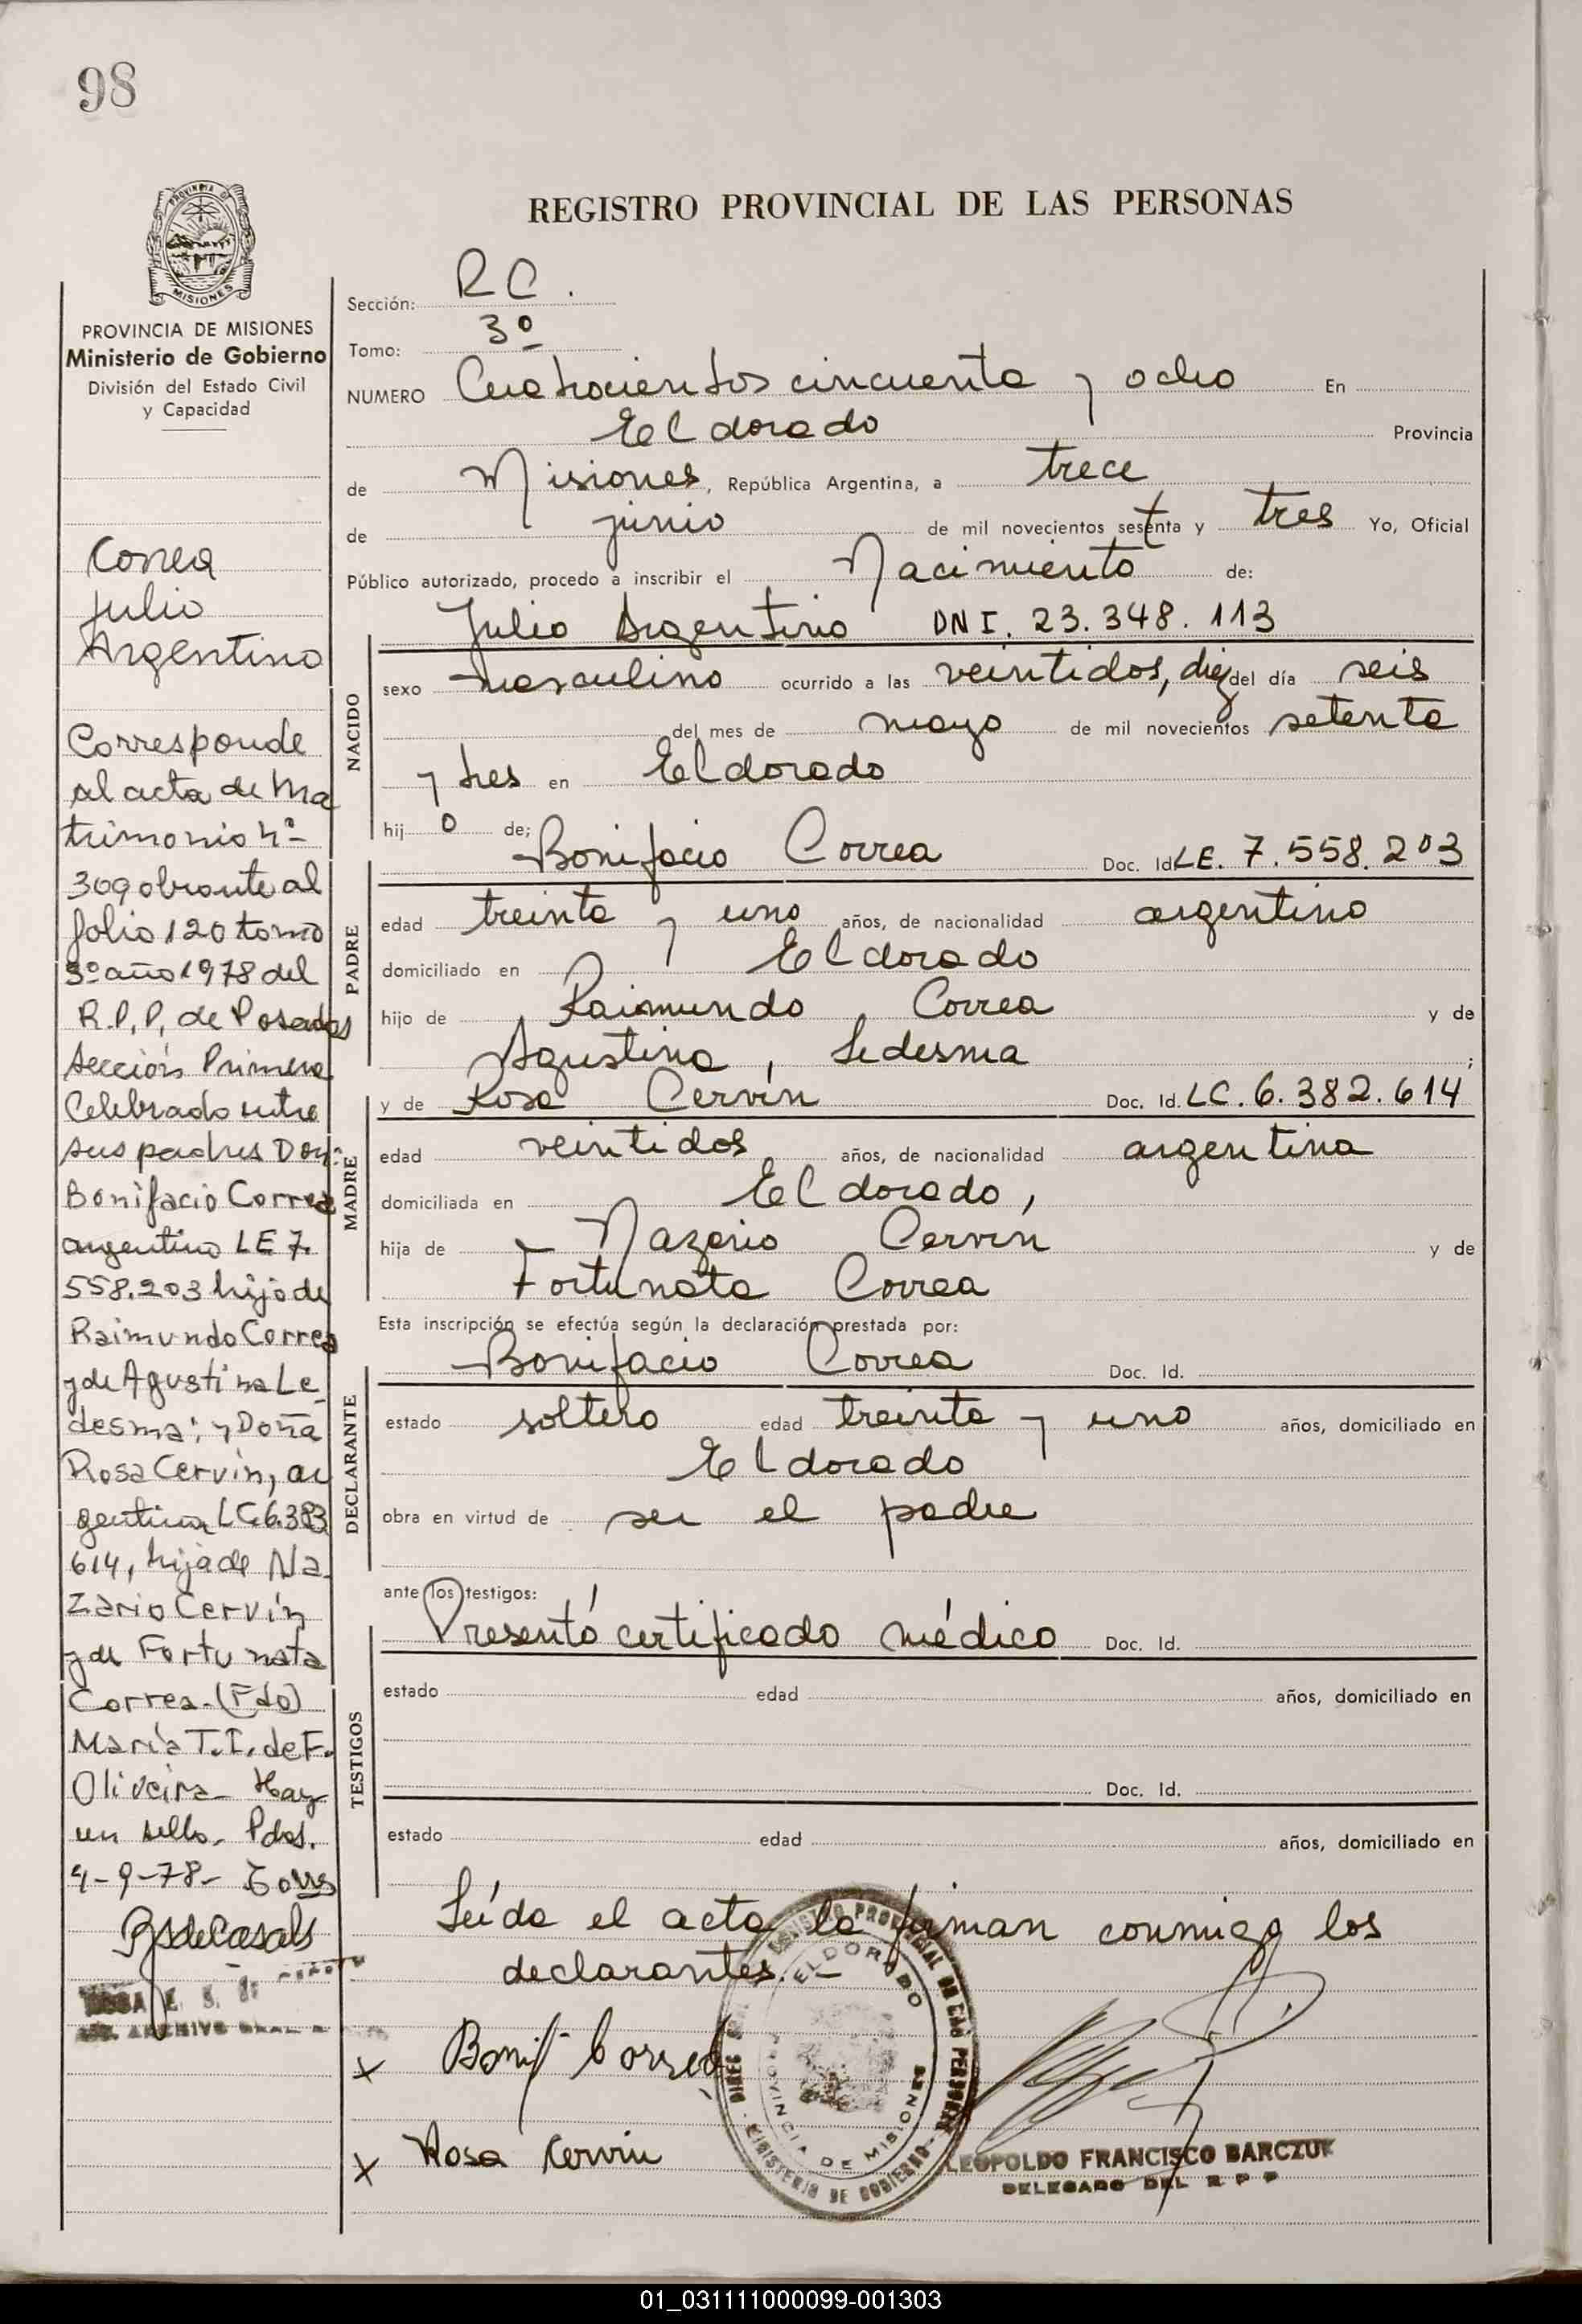 98
REGISTRO PROVINCIAL DE LAS PERSONAS
PROVINCIA DE
MISIONES
PROVINCIA DE MISIONES
Ministerio de Gobierno
División del Estado Civil
y Capacidad
Correa
Julio
Argentino
Corresponde
al acta de Ma
trimonio nº
309 obrante al
folio 120 tomo
3º año 1978 del
R.P.P. de Posadas
Sección Primera
Celebrado entre
sus padres Don:
Bonifacio Correa
argentino LE 7.
558.203 hijo de
Raimundo Correa
y de Agustina Le
desma; y Doña
Rosa Cervín, ar
gentina LC 6.382
614, hija de Na
zario Cervín
y de Fortunata
Correa.-(Fdo)
María T.I. de F.
Oliveira- Hay
un sello- Pdas.
4-9-78-
Sección: R C.
Tomo: 3º
NUMERO Cuatrocientos cincuenta y ocho En
Eldorado Provincia
de Misiones, República Argentina, a trece
de junio de mil novecientos sesenta y tres Yo, Oficial
Público autorizado, procedo a inscribir el Nacimiento de:
Julio Argentino DNI. 23.348.113
NACIDO
sexo masculino ocurrido a las veintidos, diez del día seis
del mes de mayo de mil novecientos setenta
y tres en Eldorado
hij o de; Bonifacio Correa Doc. Id. LE. 7.558.203
PADRE
edad treinta y uno años, de nacionalidad argentino
domiciliado en Eldorado
hijo de Raimundo Correa y de
Agustina, Ledesma ;
y de Rosa Cervín Doc. Id. LC. 6.382.614
MADRE
edad veintidos años, de nacionalidad argentina
domiciliada en Eldorado,
hija de Nazario Cervín y de
Fortunata Correa
Esta inscripción se efectúa según la declaración prestada por:
Bonifacio Correa Doc. Id.
DECLARANTE
estado soltero edad treinta y uno años, domiciliado en
Eldorado
obra en virtud de ser el padre
ante los testigos:
Presentó certificado médico Doc. Id.
TESTIGOS
estado edad años, domiciliado en
Doc. Id.
estado edad años, domiciliado en
Leída el acta la firman conmigo los
declarantes.-
x Bonif Correa
x Rosa Cervin
REGISTRO PROVINCIAL DE LAS PERSONAS
MINISTERIO DE GOBIERNO
ELDORADO
PROVINCIA DE MISIONES
LEOPOLDO FRANCISCO BARCZUK
DELEGADO DEL R P P
01_031111000099-001303